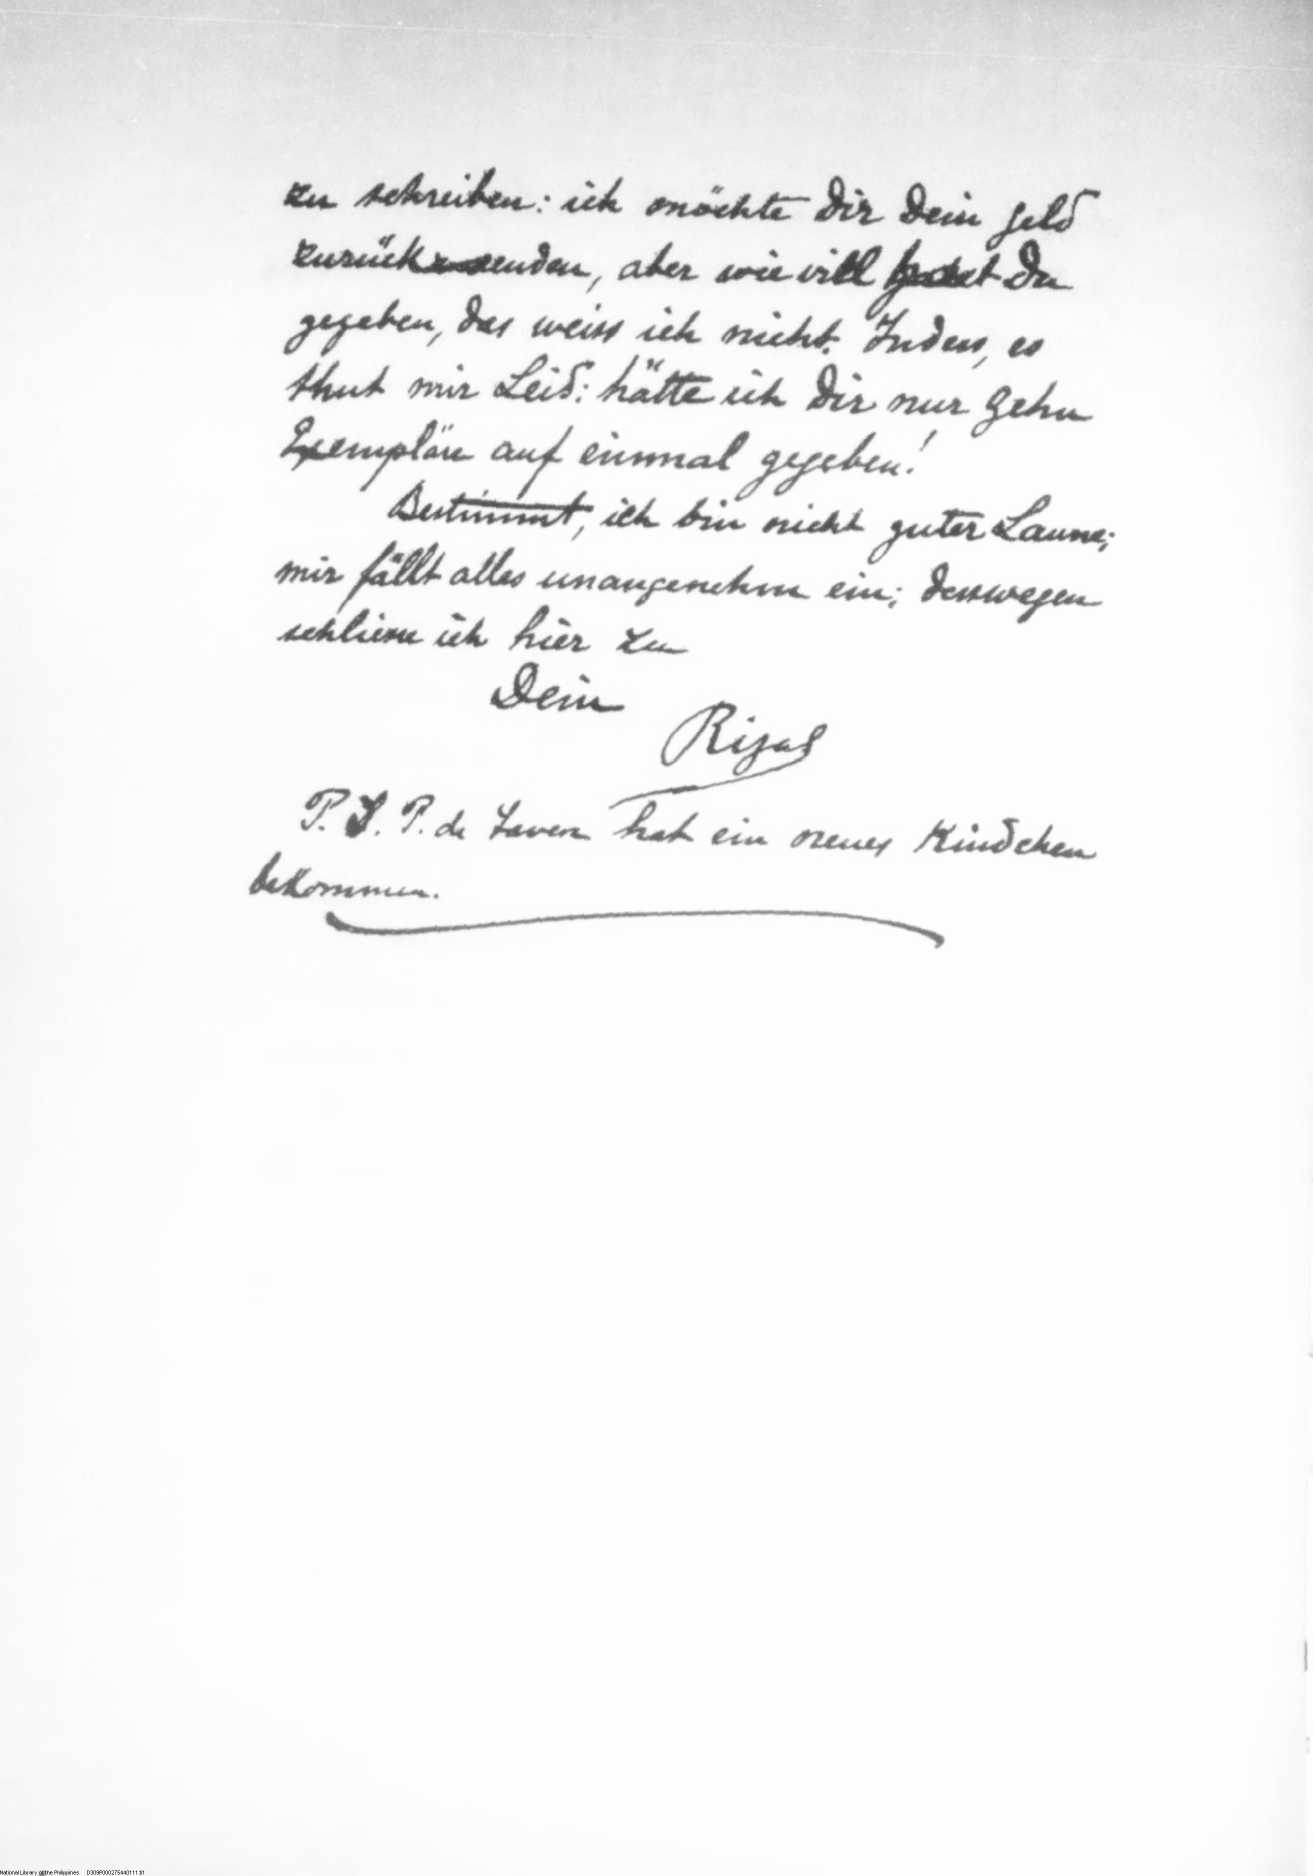 zu schreiben: ich möchte Dir Dein Geld
zurücksenden, aber wie viel hast Du
gegeben, das weiss ich nicht. Indess, es
thut mir Leid: hätte ich Dir nur zehn
Exempläre auf einmal gegeben!
Bestimmt, ich bin nicht guter Laune;
mir fällt alles unangenehm ein; desswegen
schliesse ich hier zu
Dein
Rizal
P. S. P. de Tavera hat ein neues Kindchen
bekommen.
National Library of the Philippines